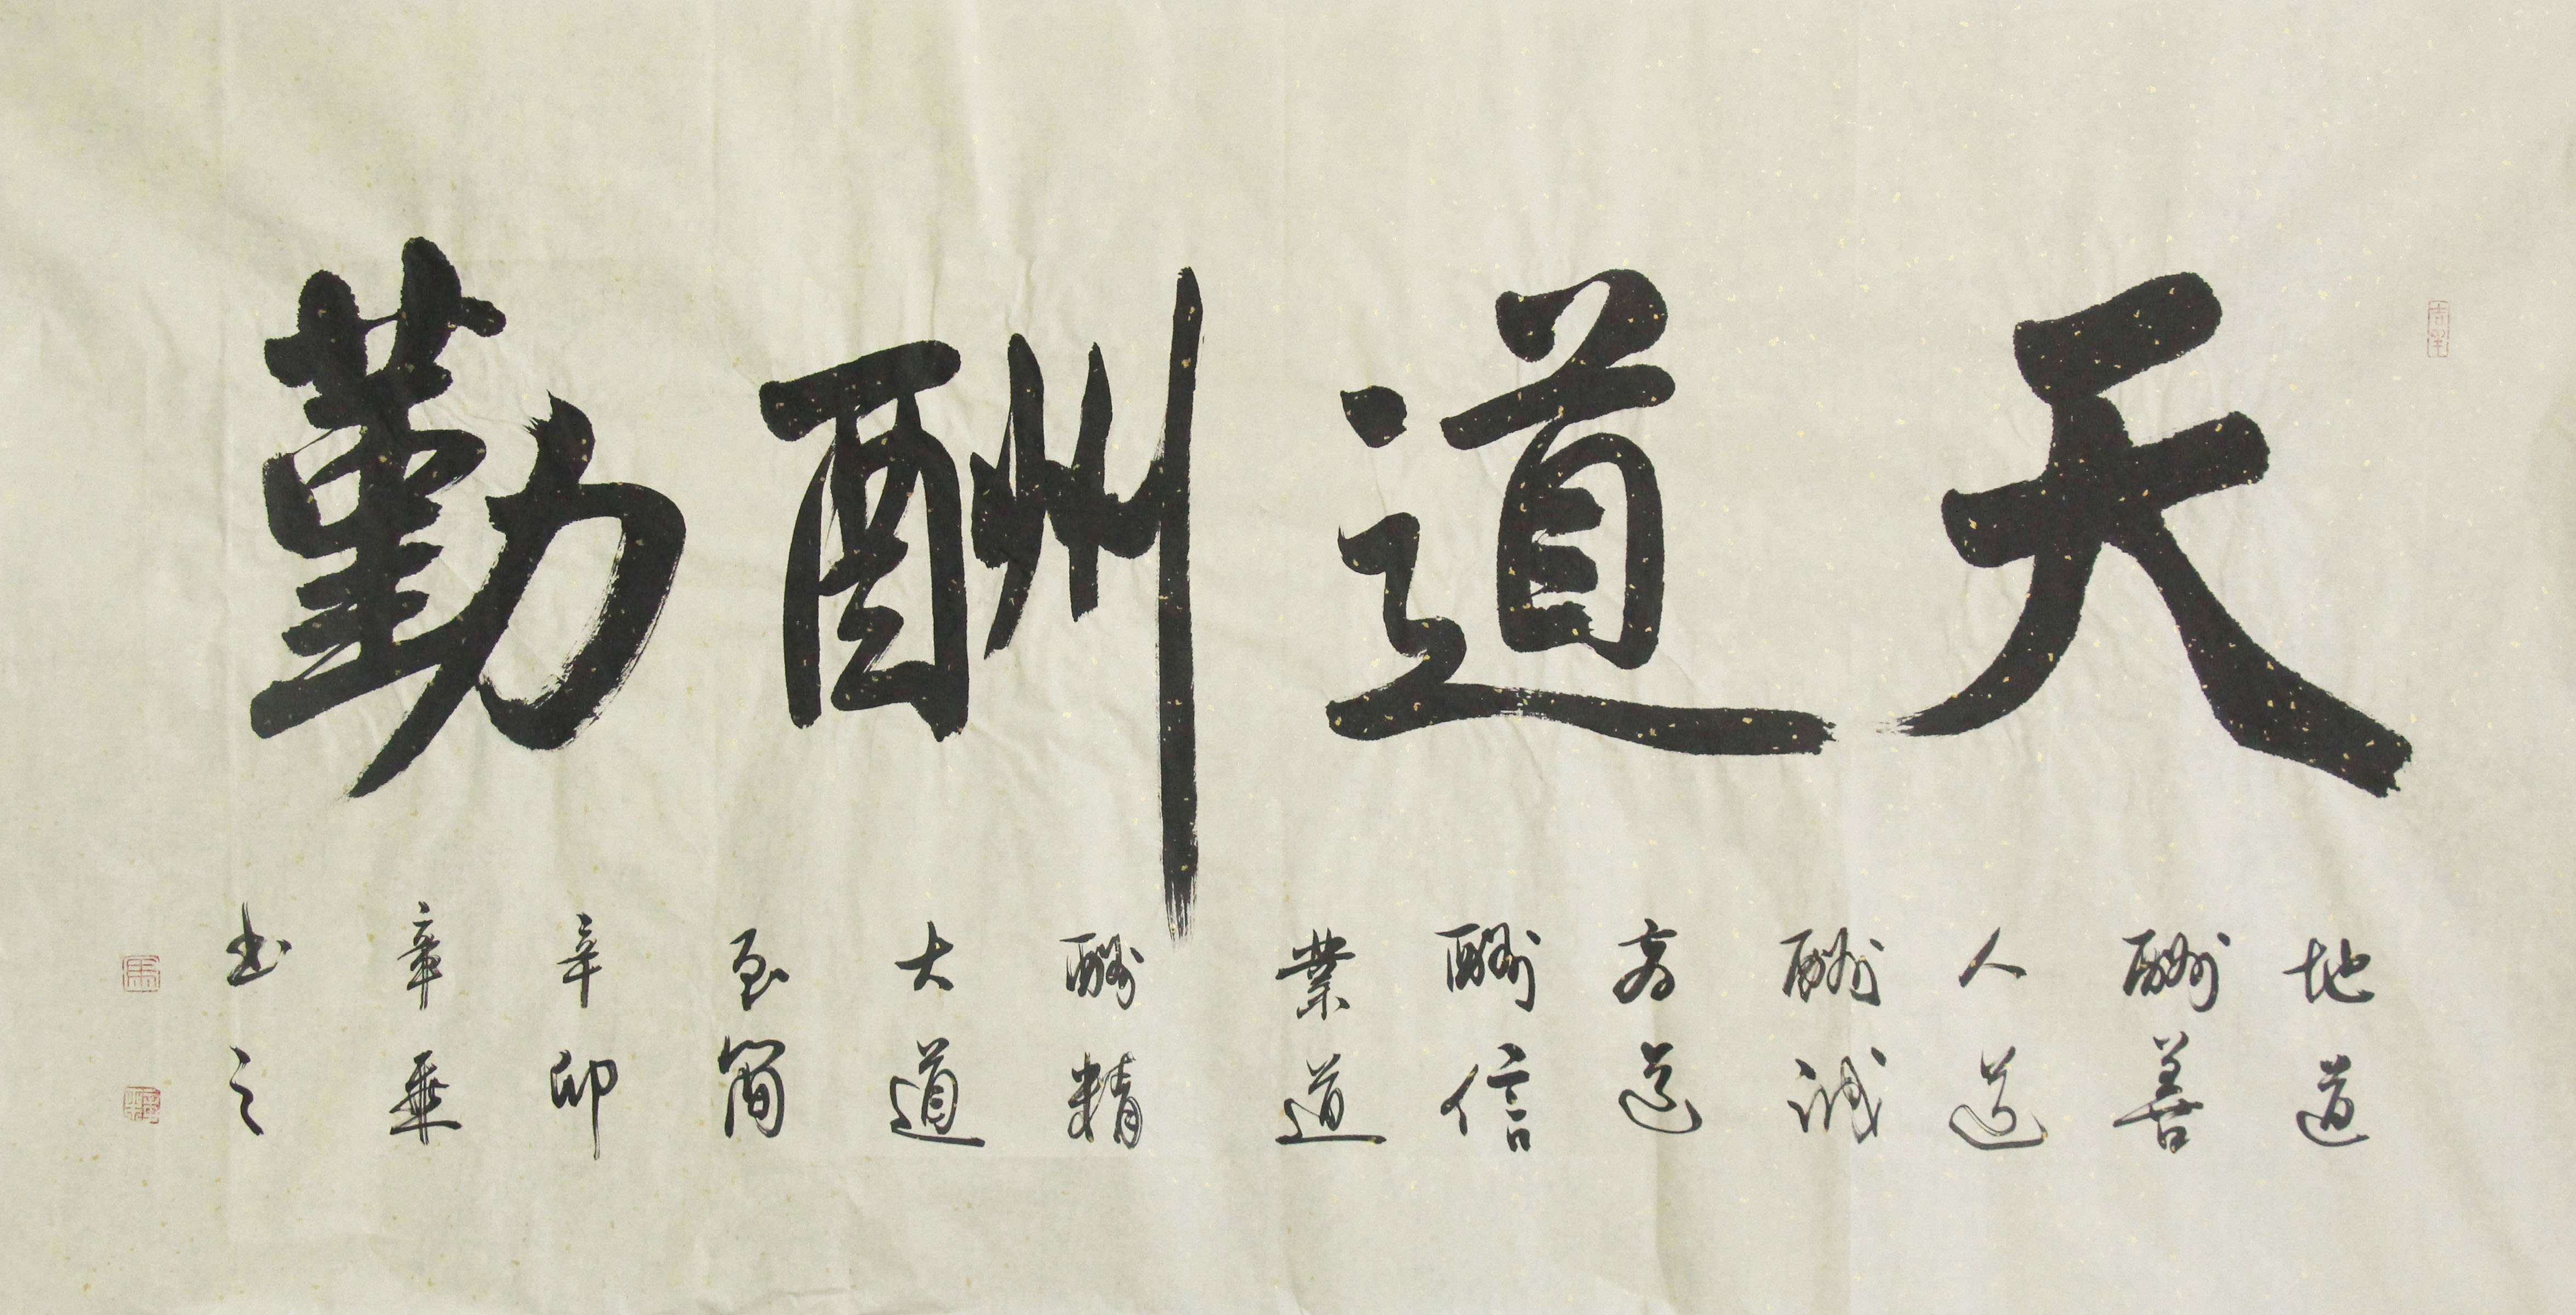 天道酬勤
地道
酬善
人道
酬誠
商道
酬信
業道
酬精
大道
至簡
辛卯
章乘
书之